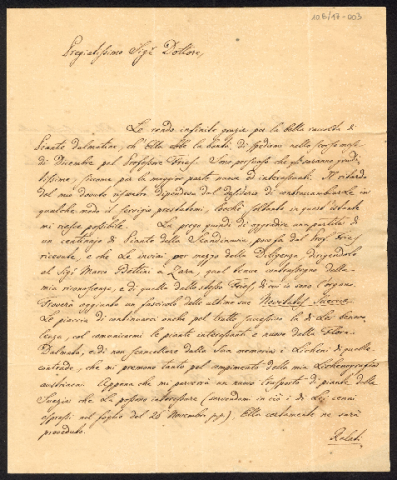 10B/17-003
Pregiatissimo Sigr Dottore,
Le rendo infinite grazie per la bella raccolta di
Piante dalmatiche, ch'Ella ebbe la bontà di spedirmi nello scorso mese
di Dicembre pel Professore
per la maggior parte nuove ed interessanti. Il ritardo
del mio dovuto riscontro dipendeva dal desiderio di contraccambiarle in
qualche modo il servigio prestatomi, locchè soltanto in quest'istante
mi riesce possibile. La prego quindi di aggradire una partita di
un centinajo di Piante della Scandinavia
ricevente, e che Le invii per mezzo della Diligenza dirigendola
al Sigr Marco in Zara, qual tenue contrassegno della
mia riconoscenza, e di quella dello stesso di cui io sono l'organo.
Troverà aggiunto un fascicolo delle ultime sue
Le piaccia di continuarci anche pel tratto successivo la di Lei benevo-
lenza, col comunicarmi le piante interessanti e nuove della Flora
Dalmata, e di non scancellare dalla Sua memoria i Licheni di quelle
contrade, che mi premono tanto pel compimento della mia Lichenografia
austriaca. Appena che mi perverrà un nuovo trasporto di piante della
Svezia che Le possono interessare (servendomi in ciò i di Lei cenni
espressi nel foglio del 26 Novembre p.p.), Ella certamente ne sarà
provveduto.